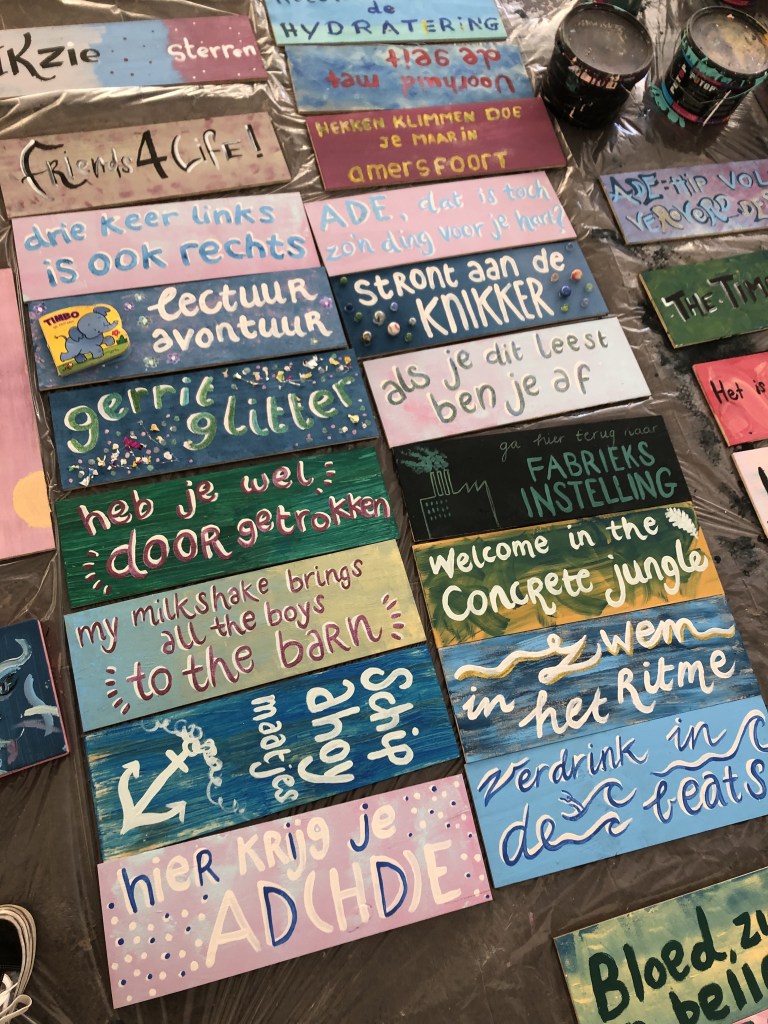 IKzie sterren
de
HYDRATERING
Voorhuid met
de geit
HEKKEN KLIMMEN DOE
JE MAAR IN
amersfoort
friends 4 Life!
drie keer links
is ook rechts
ADE, dat is toch
zo'n ding voor je haar?
TIMBO
lectuur
avontuur
stront aan de
KNIKKER
gerrit
glitter
als je dit leest
ben je af
heb je wel
door getrokken
ga hier terug naar
FABRIEKS
INSTELLING
my milkshake brings
all the boys
to the barn
Welcome in the
Concrete jungle
Schip
ahoy
maatjes
Zwem
in het Ritme
hier krijg je
AD(HD)E
Verdrink in
de beats
ADE-TIP VOL
THE TIME
Het is
Bloed, zw